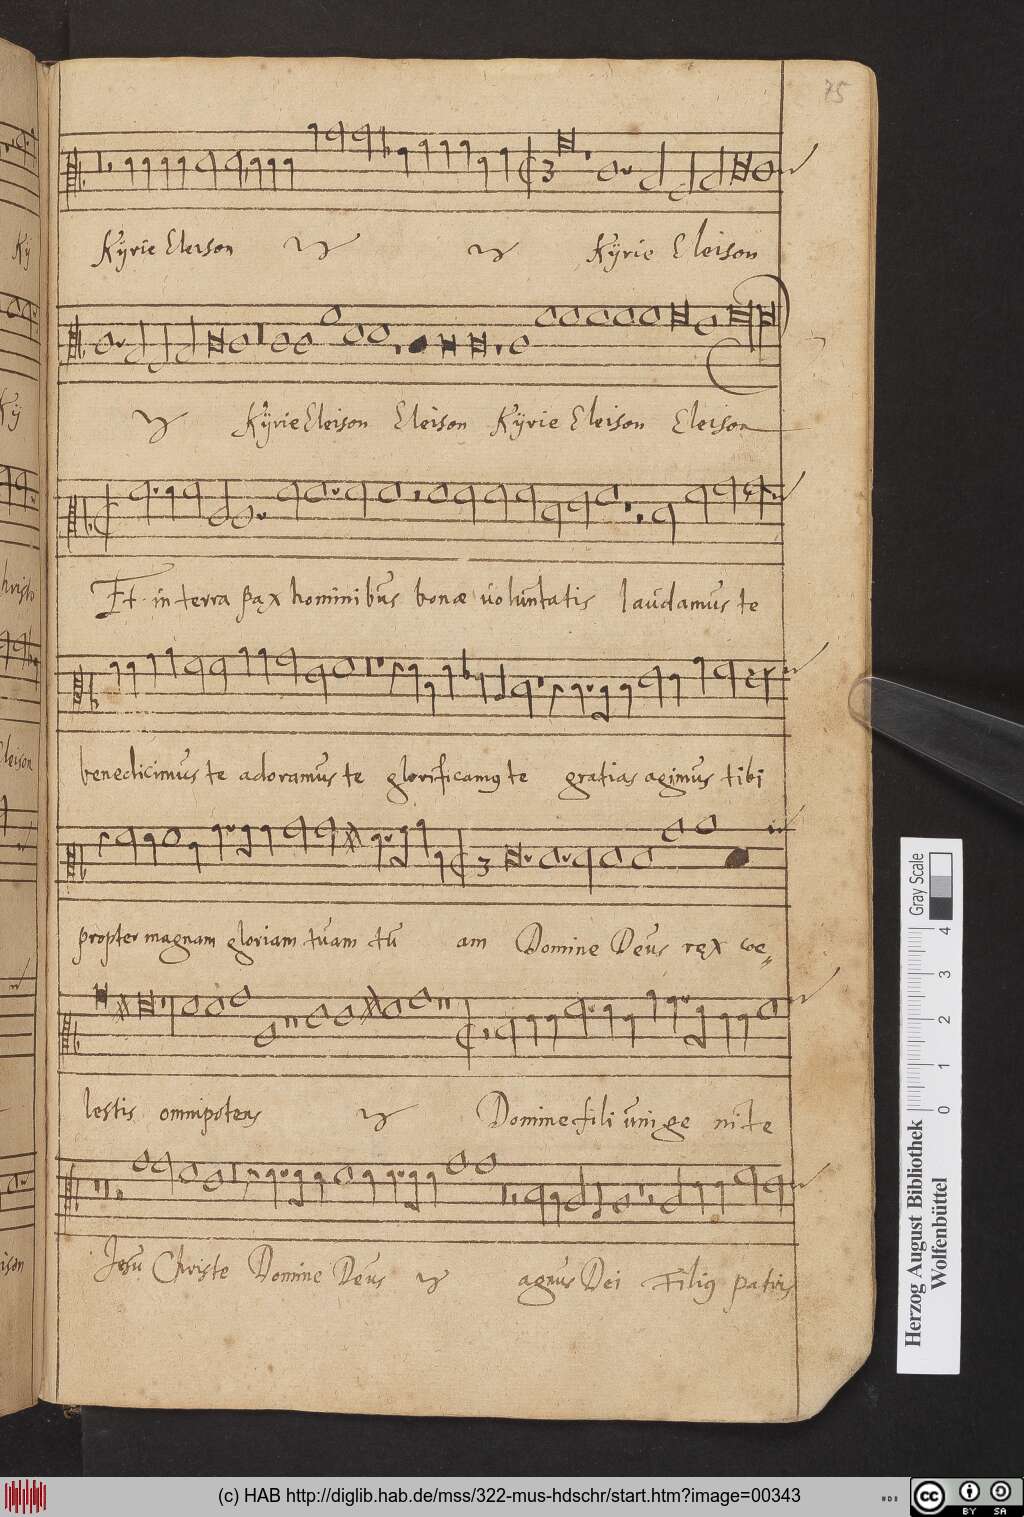 75
Kÿrie Eleison Kÿrie Eleison
Kÿrie Eleison Eleison Kÿrie Eleison Eleison
Et in terra pax hominibus bonæ voluntatis laudamus te
benedicimus te adoramus te glorificamus te gratias agimus tibi
propter magnam gloriam tuam tu am Domine Deus rex cœ„
lestis omnipotens Domine fili unige nite
Jesu Christe Domine Deus agnus Dei Filius patris
Kÿ
Kÿ
Eleison
ison
Gray Scale
0 1 2 3 4
Herzog August Bibliothek
Wolfenbüttel
(c) HAB http://diglib.hab.de/mss/322-mus-hdschr/start.htm?image=00343
cc BY SA